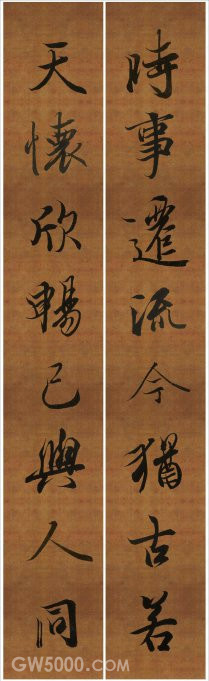 時事遷流今猶古若
天懷欣暢己與人同
GW5000.COM